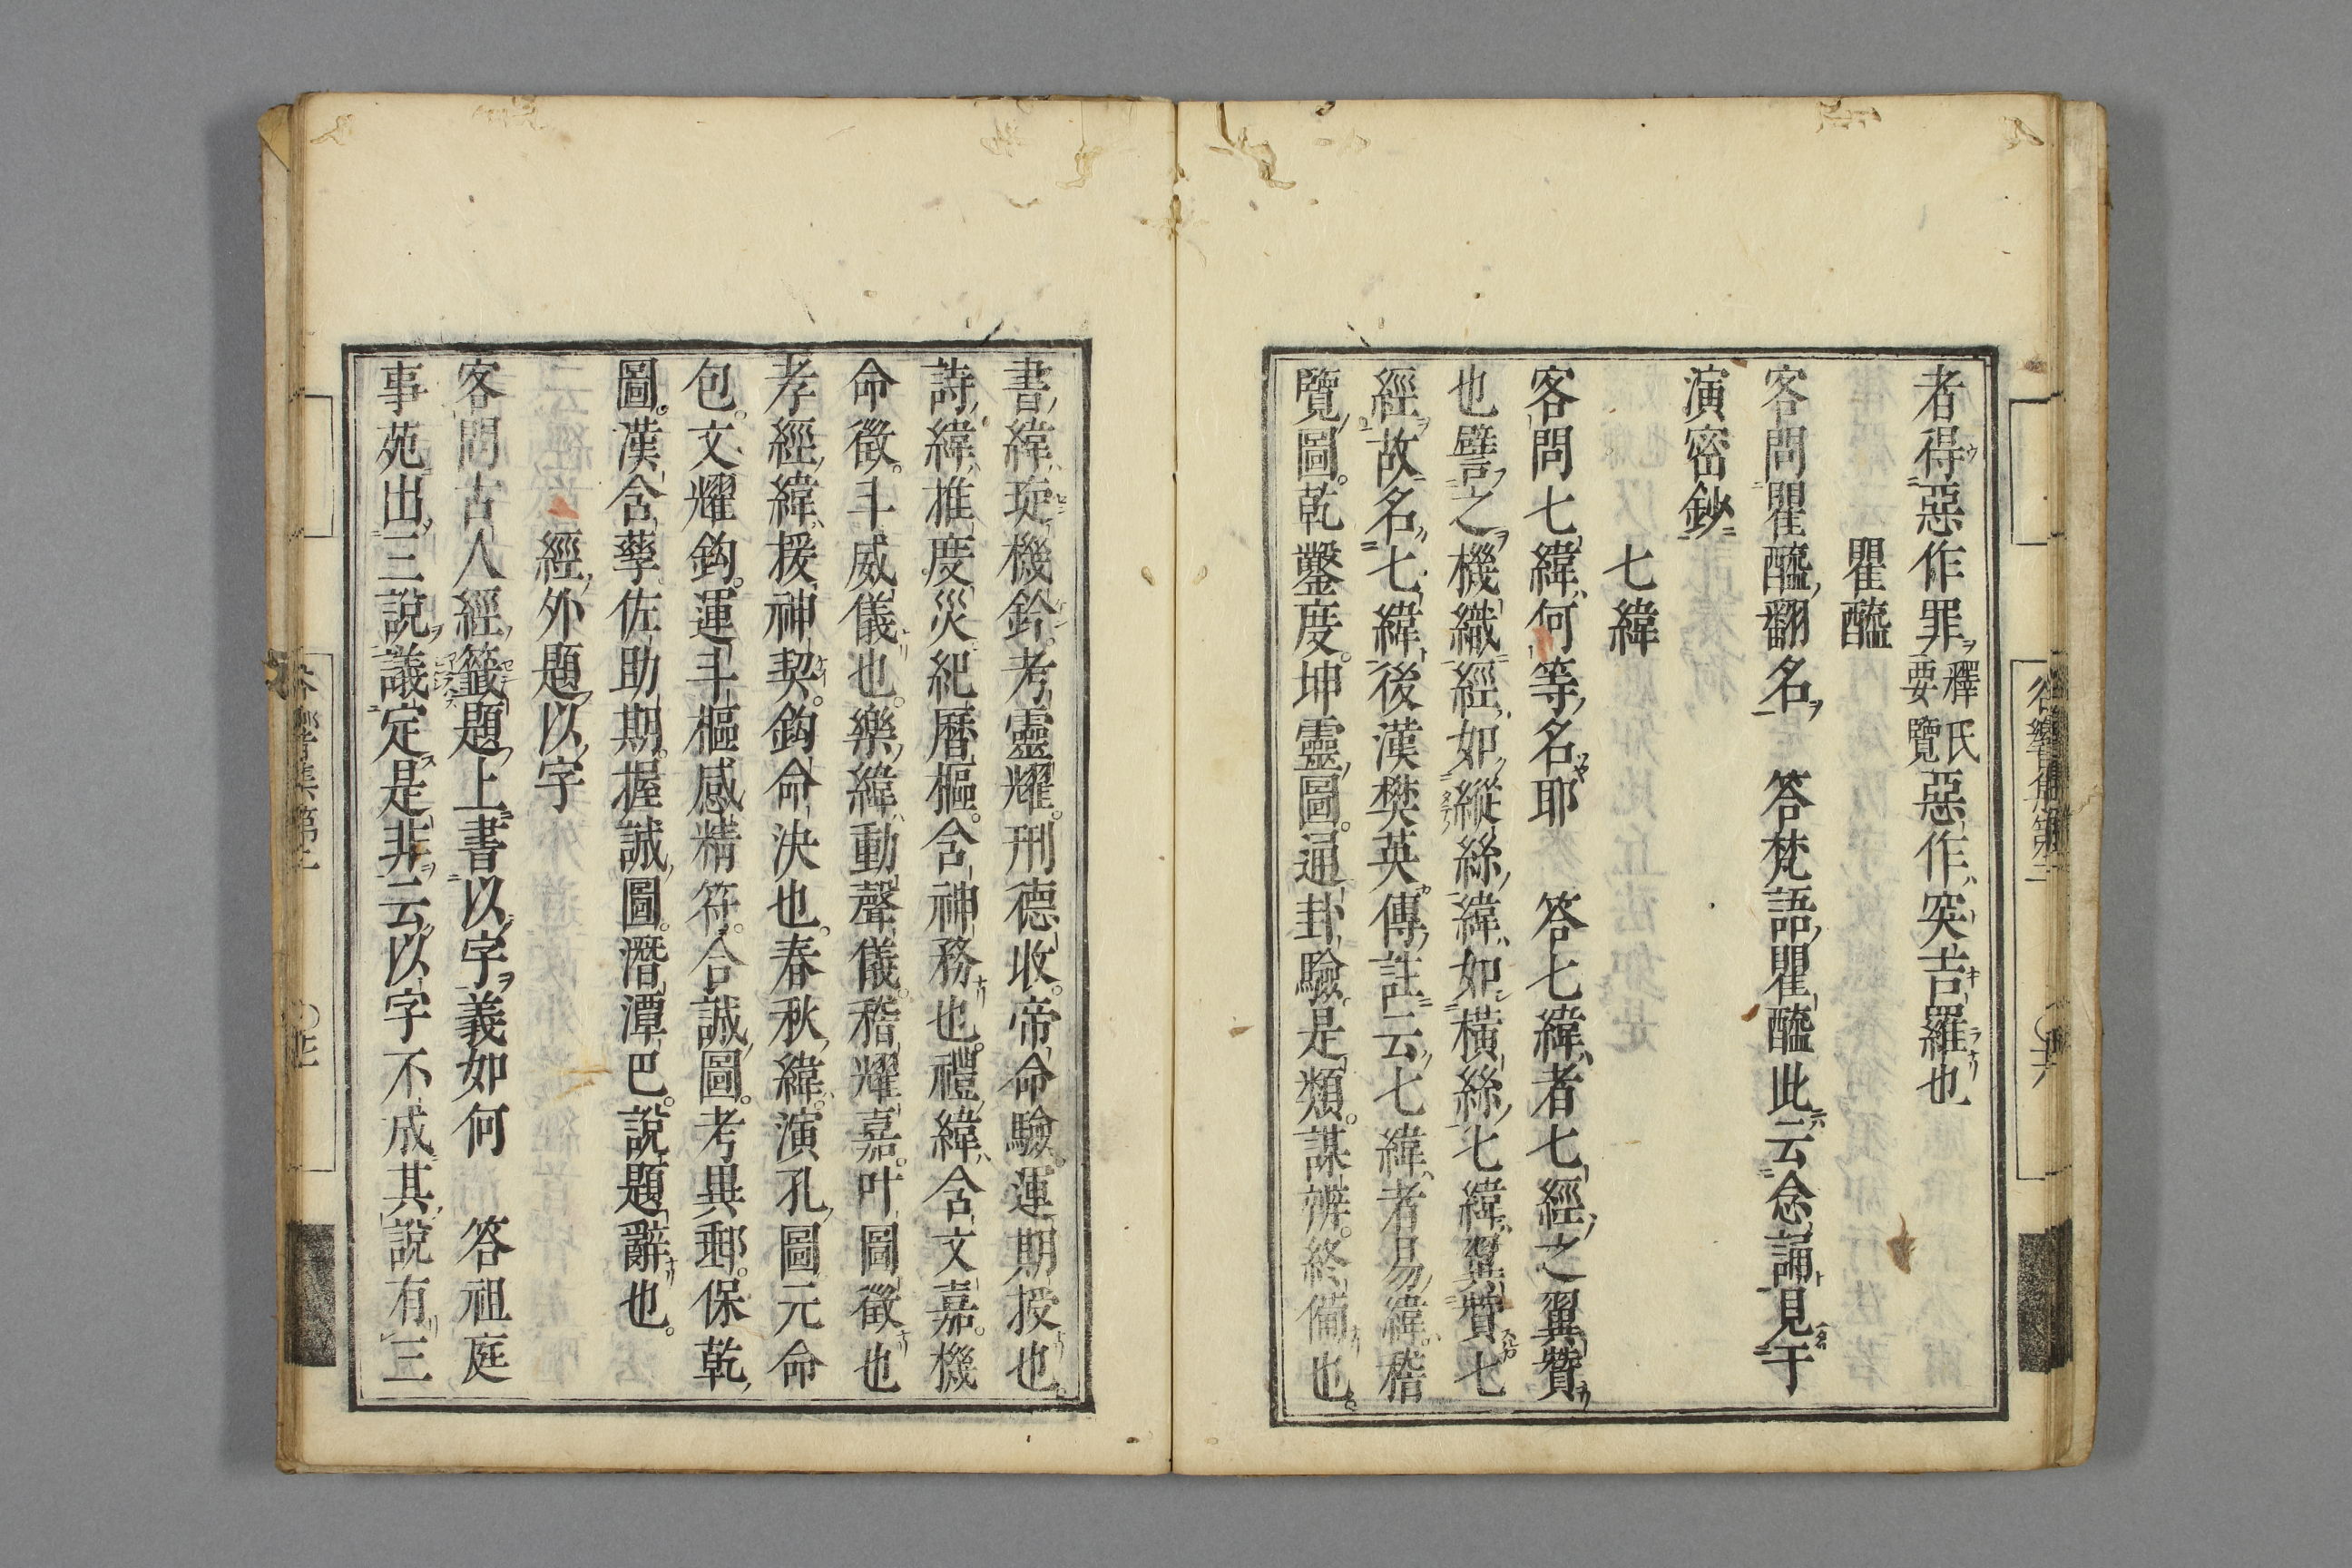 者得惡作罪釋氏要覽惡作突吉羅也
瞿醯
客問瞿醯翻名　答梵語瞿醯此云念誦見于
演密鈔
七緯
客問七緯何等名耶　答七緯者七經之翼贊
也譬之機織經如縱絲緯如橫絲七緯翼贊七
經故名七緯後漢樊英傳註云七緯者易緯稽
覽圖。乾鑿度。坤靈圖。通卦驗。是類。謀辨。終備也
書緯琁機鈐。考靈耀。刑德收。帝命驗。運期授也
詩緯推度災紀曆樞。含神務也。禮緯含文嘉。機
命徵。斗威儀也。樂緯動聲儀。稽耀嘉。叶圖徵也
孝經緯援神契。鈎命決也。春秋緯演孔圖元命
包。文耀鈎。運斗樞感精符。合誠圖。考異郵。保乾
圖。漢含孳佐助期。握誠圖。潛潭巴。說題辭也。
經外題以字
客問古人經籤題上書以字義如何　答祖庭
事苑出三說議定是非云以字不成其說有三